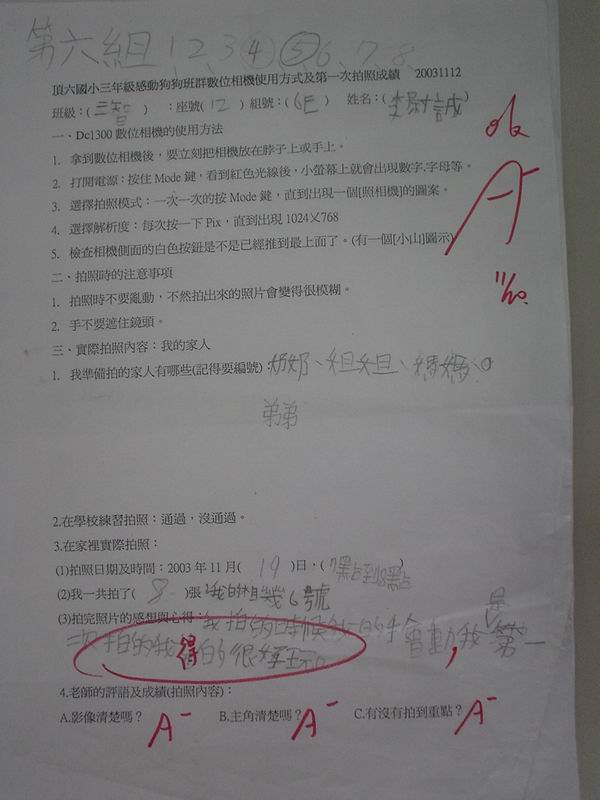 第六組 1、2、3、④、⑤、6、7、8、
頂六國小三年級感動狗狗班群數位相機使用方式及第一次拍照成績 20031112
班級:(三智 ) :座號( 12 ) 組號:( 6E ) 姓名:(李尉誠)
ok
一、Dc1300 數位相機的使用方法
1. 拿到數位相機後,要立刻把相機放在脖子上或手上。
2. 打開電源:按住 Mode 鍵,看到紅色光線後,小螢幕上就會出現數字.字母等。
A-
3. 選擇拍照模式:一次一次的按 Mode 鍵,直到出現一個[照相機]的圖案。
4. 選擇解析度:每次按一下 Pix,直到出現 1024乂768
5. 檢查相機側面的白色按鈕是不是已經推到最上面了。(有一個[小山]圖示)
11/20.
二、拍照時的注意事項
1. 拍照時不要亂動,不然拍出來的照片會變得很模糊。
2. 手不要遮住鏡頭。
三、實際拍照內容:我的家人
1. 我準備拍的家人有哪些(記得要編號):奶奶、姐姐、媽媽、
弟弟
2.在學校練習拍照:通過,沒通過。
3.在家裡實際拍照:
(1)拍照日期及時間:2003 年 11 月( 19 )日,(7點到8點)
(2)我一共拍了( 8 )張 我的相幾6號
(3)拍完照片的感想與心得:我拍的時候我的手會動,我是第一
次拍的我得的很
4.老師的評語及成績(拍照內容):
A.影像清楚嗎? A- B.主角清楚嗎? A- C.有沒有拍到重點? A-